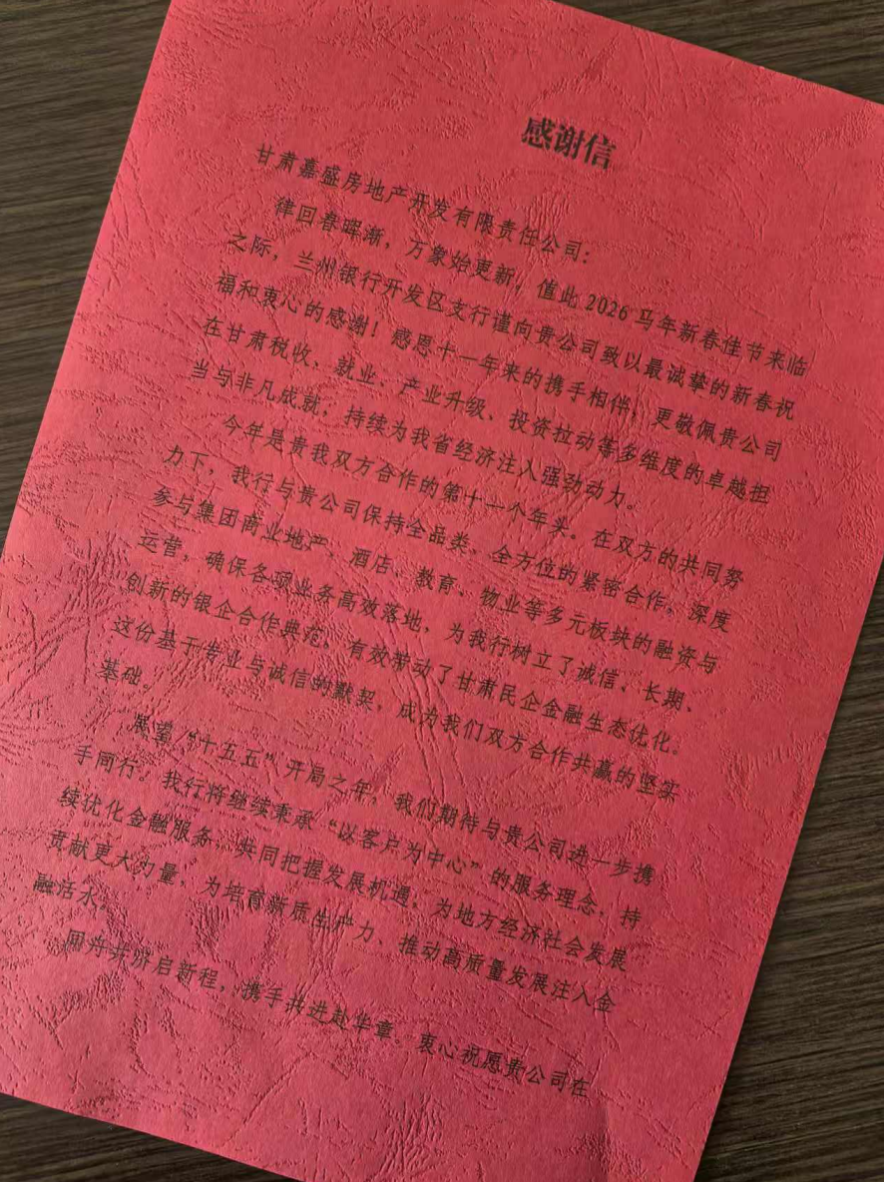 感谢信
甘肃嘉盛房地产开发有限责任公司：
律回春晖渐，万象始更新，值此2026马年新春佳节来临
之际，兰州银行开发区支行谨向贵公司致以最诚挚的新春祝
福和衷心的感谢！感恩十一年来的携手相伴，更敬佩贵公司
在甘肃税收、就业、产业升级、投资拉动等多维度的卓越担
当与非凡成就，持续为我省经济注入强劲动力。
今年是贵我双方合作的第十一个年头。在双方的共同努
力下，我行与贵公司保持全品类、全方位的紧密合作，深度
参与集团商业地产、酒店、教育、物业等多元板块的融资与
运营，确保各项业务高效落地，为我行树立了诚信、长期、
创新的银企合作典范，有效带动了甘肃民企金融生态优化。
这份基于专业与诚信的默契，成为我们双方合作共赢的坚实
基础。
展望“十五五”开局之年，我们期待与贵公司进一步携
手同行。我行将继续秉承“以客户为中心”的服务理念，持
续优化金融服务，共同把握发展机遇，为地方经济社会发展
贡献更大力量，为培育新质生产力、推动高质量发展注入金
融活水。
同舟共济启新程，携手共进赴华章。衷心祝愿贵公司在